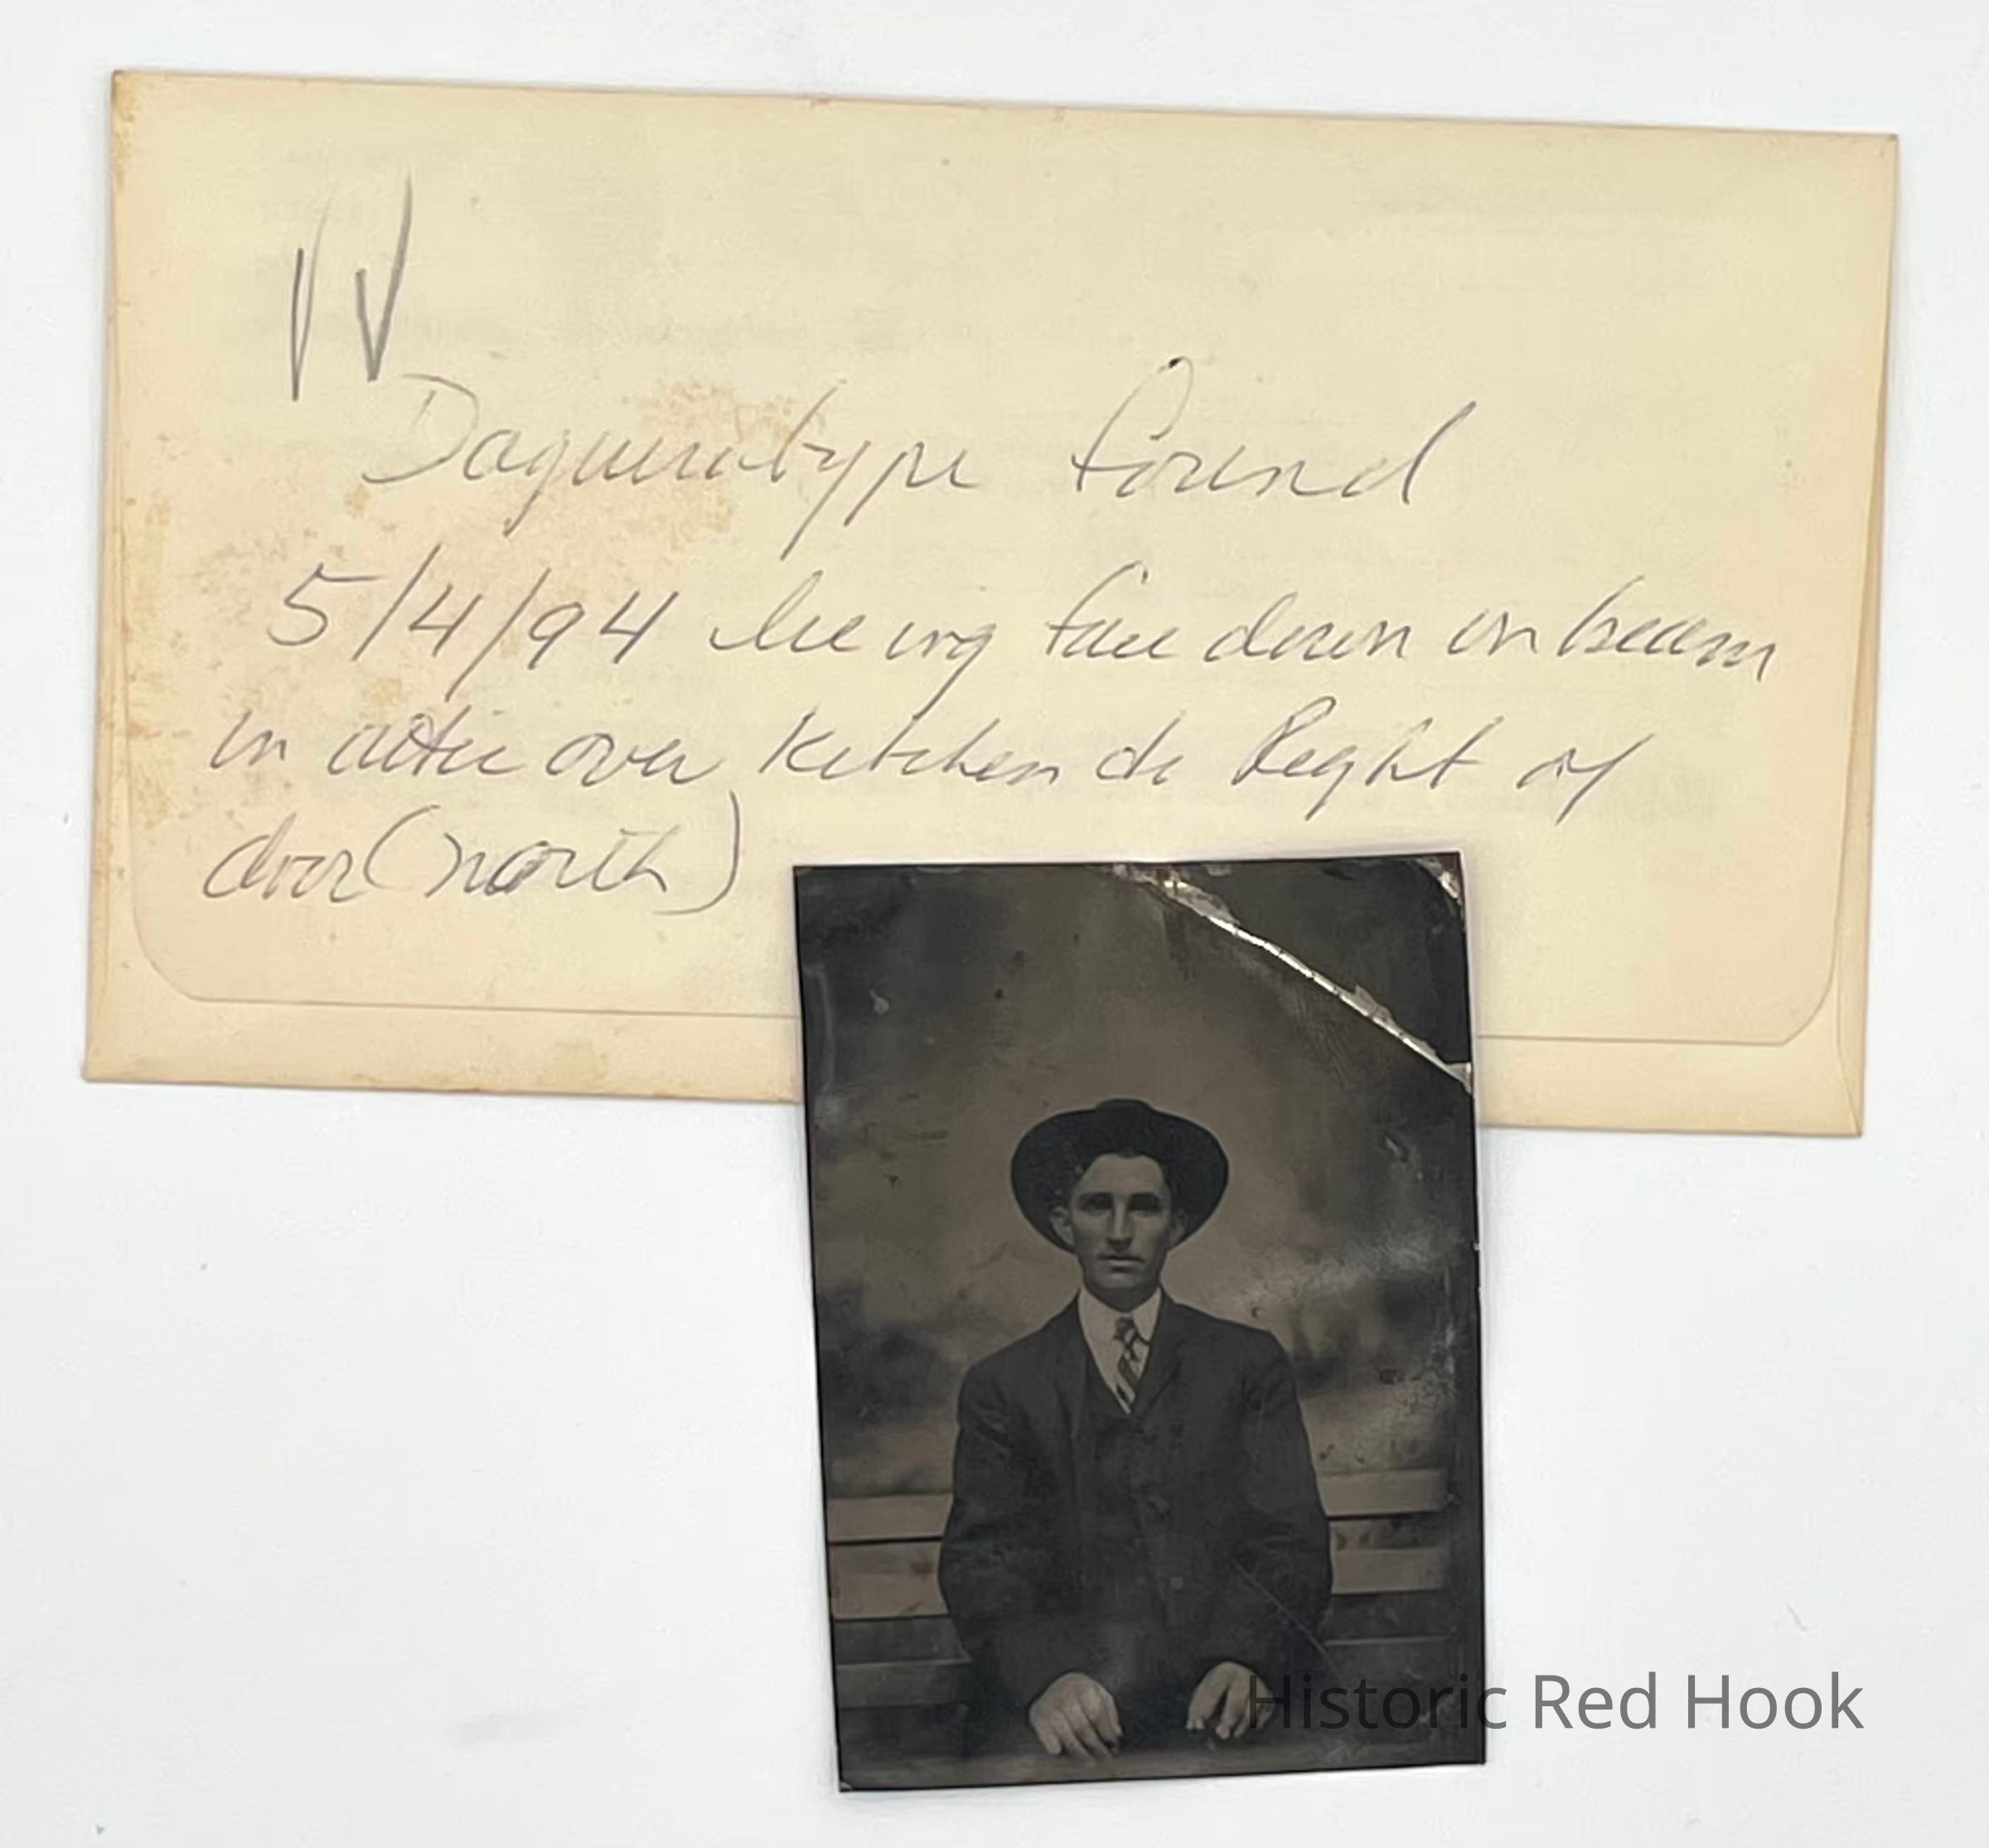 Daguerrotype found
5/4/94 lieing face down on beam
in attic over kitchen to Right of
door (north)
Historic Red Hook